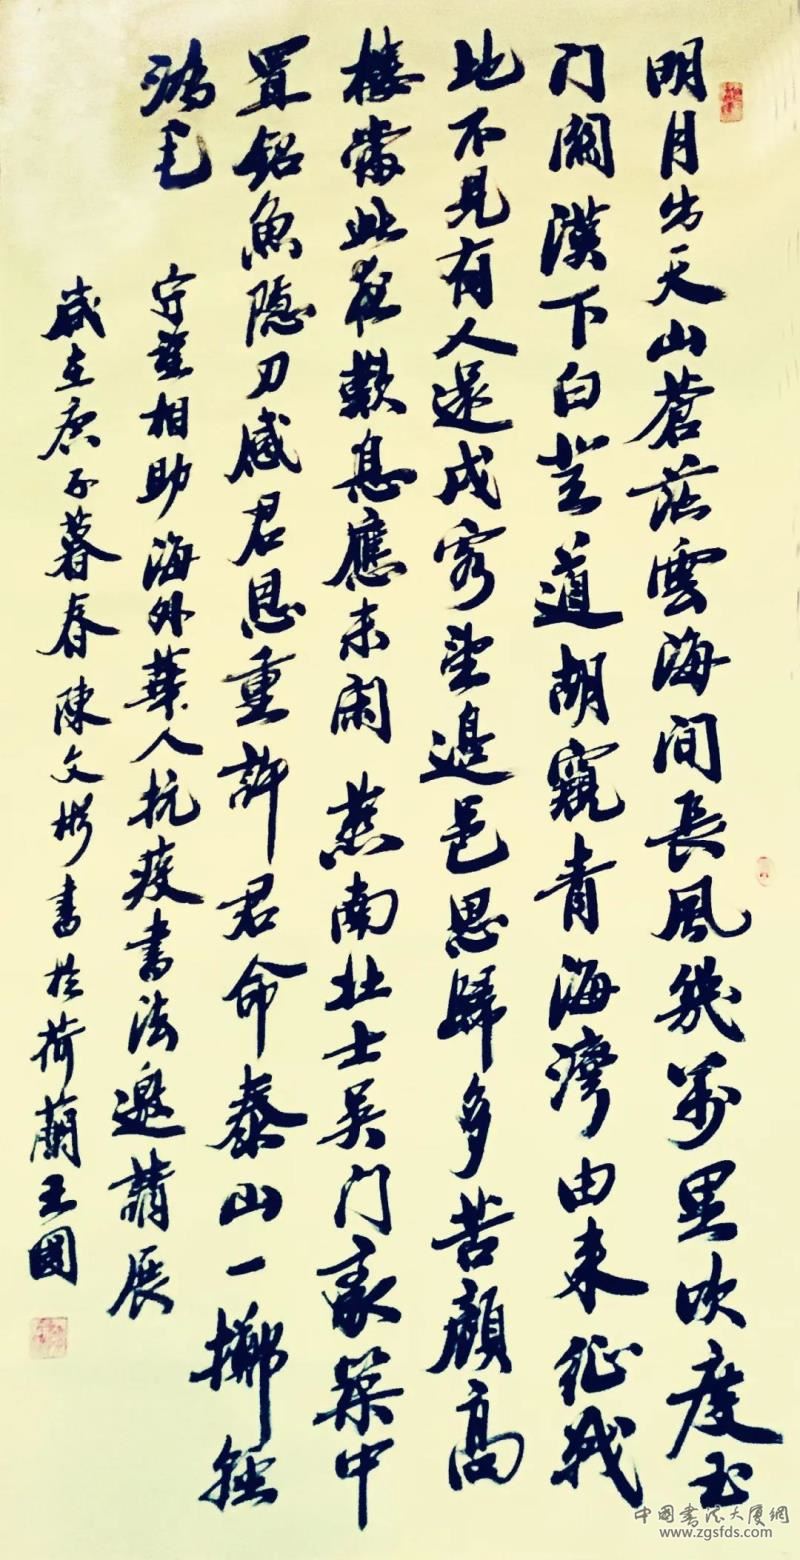 明月出天山蒼茫雲海间長風幾萬里吹度玉
门關漢下白登道胡窺青海灣由来征戰
地不見有人還戍客望邊邑思歸多苦顔高
樓當此夜歎息應未閑燕南壮士吴门豪築中
置鉛魚隱刀感君恩重許君命泰山一擲軽
鴻毛
守望相助海外華人抗疫書法邀請展
歲在庚子暮春陳文彬書於荷蘭王國
中國書法大厦網
www.zgsfds.com